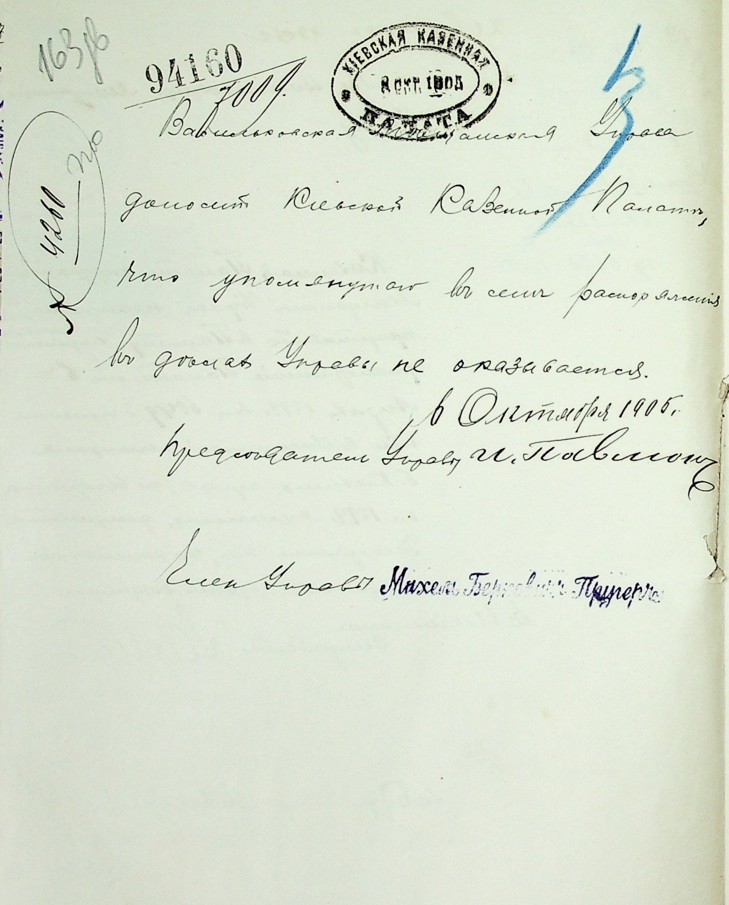 163 об
94160
7009.
КІЕВСКАЯ КАЗЕННАЯ
8 окт 1905
ПАЛАТА
№ 4260
Васильковская Мещанская Управа
доносит Кіевской Казенной Палатѣ,
что упомянутаго въ семъ распоряженія
въ делах Управы не оказывается.
Октября 1905 г.
Председатель Управы И. Павлюк
Член Управы Михель Берковичъ